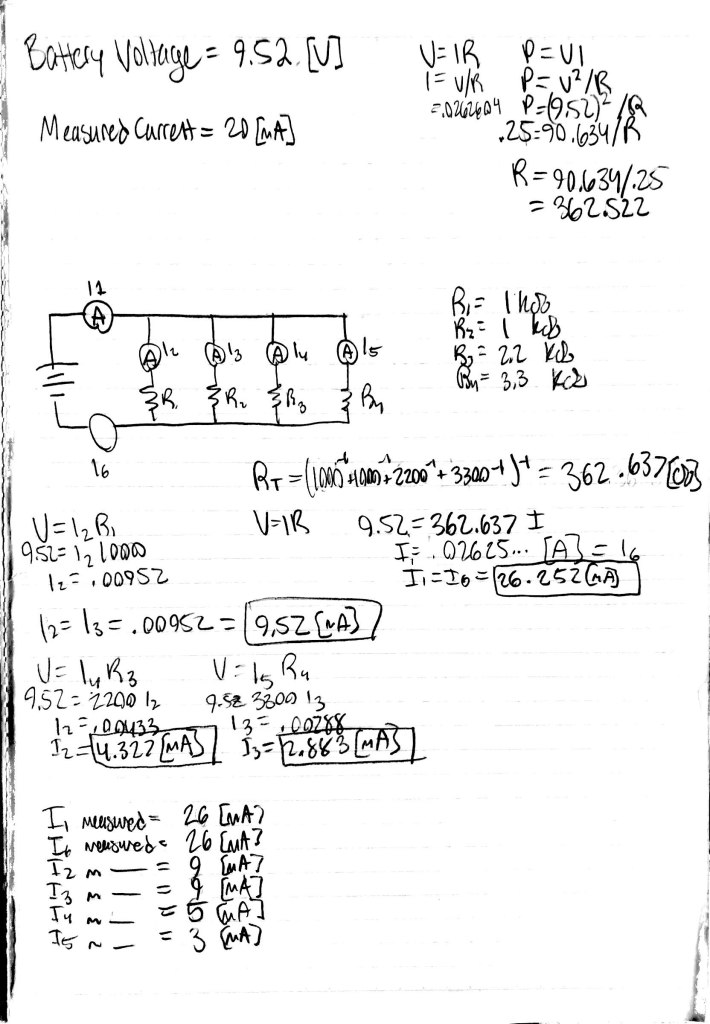 Battery Voltage = 9.52 [V]
V=IR P=VI
I= V/R P= V²/R
=.0262604 P=(9.52)²/R
Measured Current = 20 [mA]
.25=90.634/R
R=90.634/.25
= 362.522
I1
A
A I2 A I3 A I4 A I5
R1 R2 R3 R4
I6
R1= 1
R2= 1
R3= 2.2
R4= 3.3
RT=(1000⁻¹+1000⁻¹+2200⁻¹+3300⁻¹)⁻¹ = 362.637
V=I2R1 V=IR 9.52=362.637 I
9.52=I2 1000 I1= .02625... [A] = I6
I2=.00952 I1=I6= 26.252 [mA]
I2= I3=.00952= 9.52 [mA]
V= I4 R3 V= I5 R4
9.52=2200 I2 9.52 3300 I3
I2=.00433 I3=.00288
I2= 4.327 [mA] I3= 2.883 [mA]
I1 measured= 26 [mA]
I6 measured= 26 [mA]
I2 m — = 9 [mA]
I3 m — = 9 [mA]
I4 m — = 5 [mA]
I5 m — = 3 [mA]